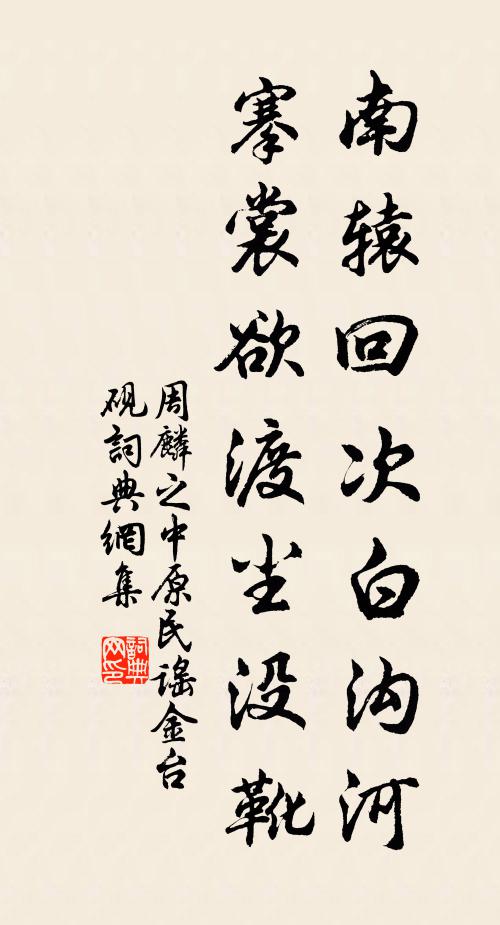 南辕回次白沟河
褰裳欲渡尘没靴
周麟之中原民謠金台
硯詞典網集
詞典网印